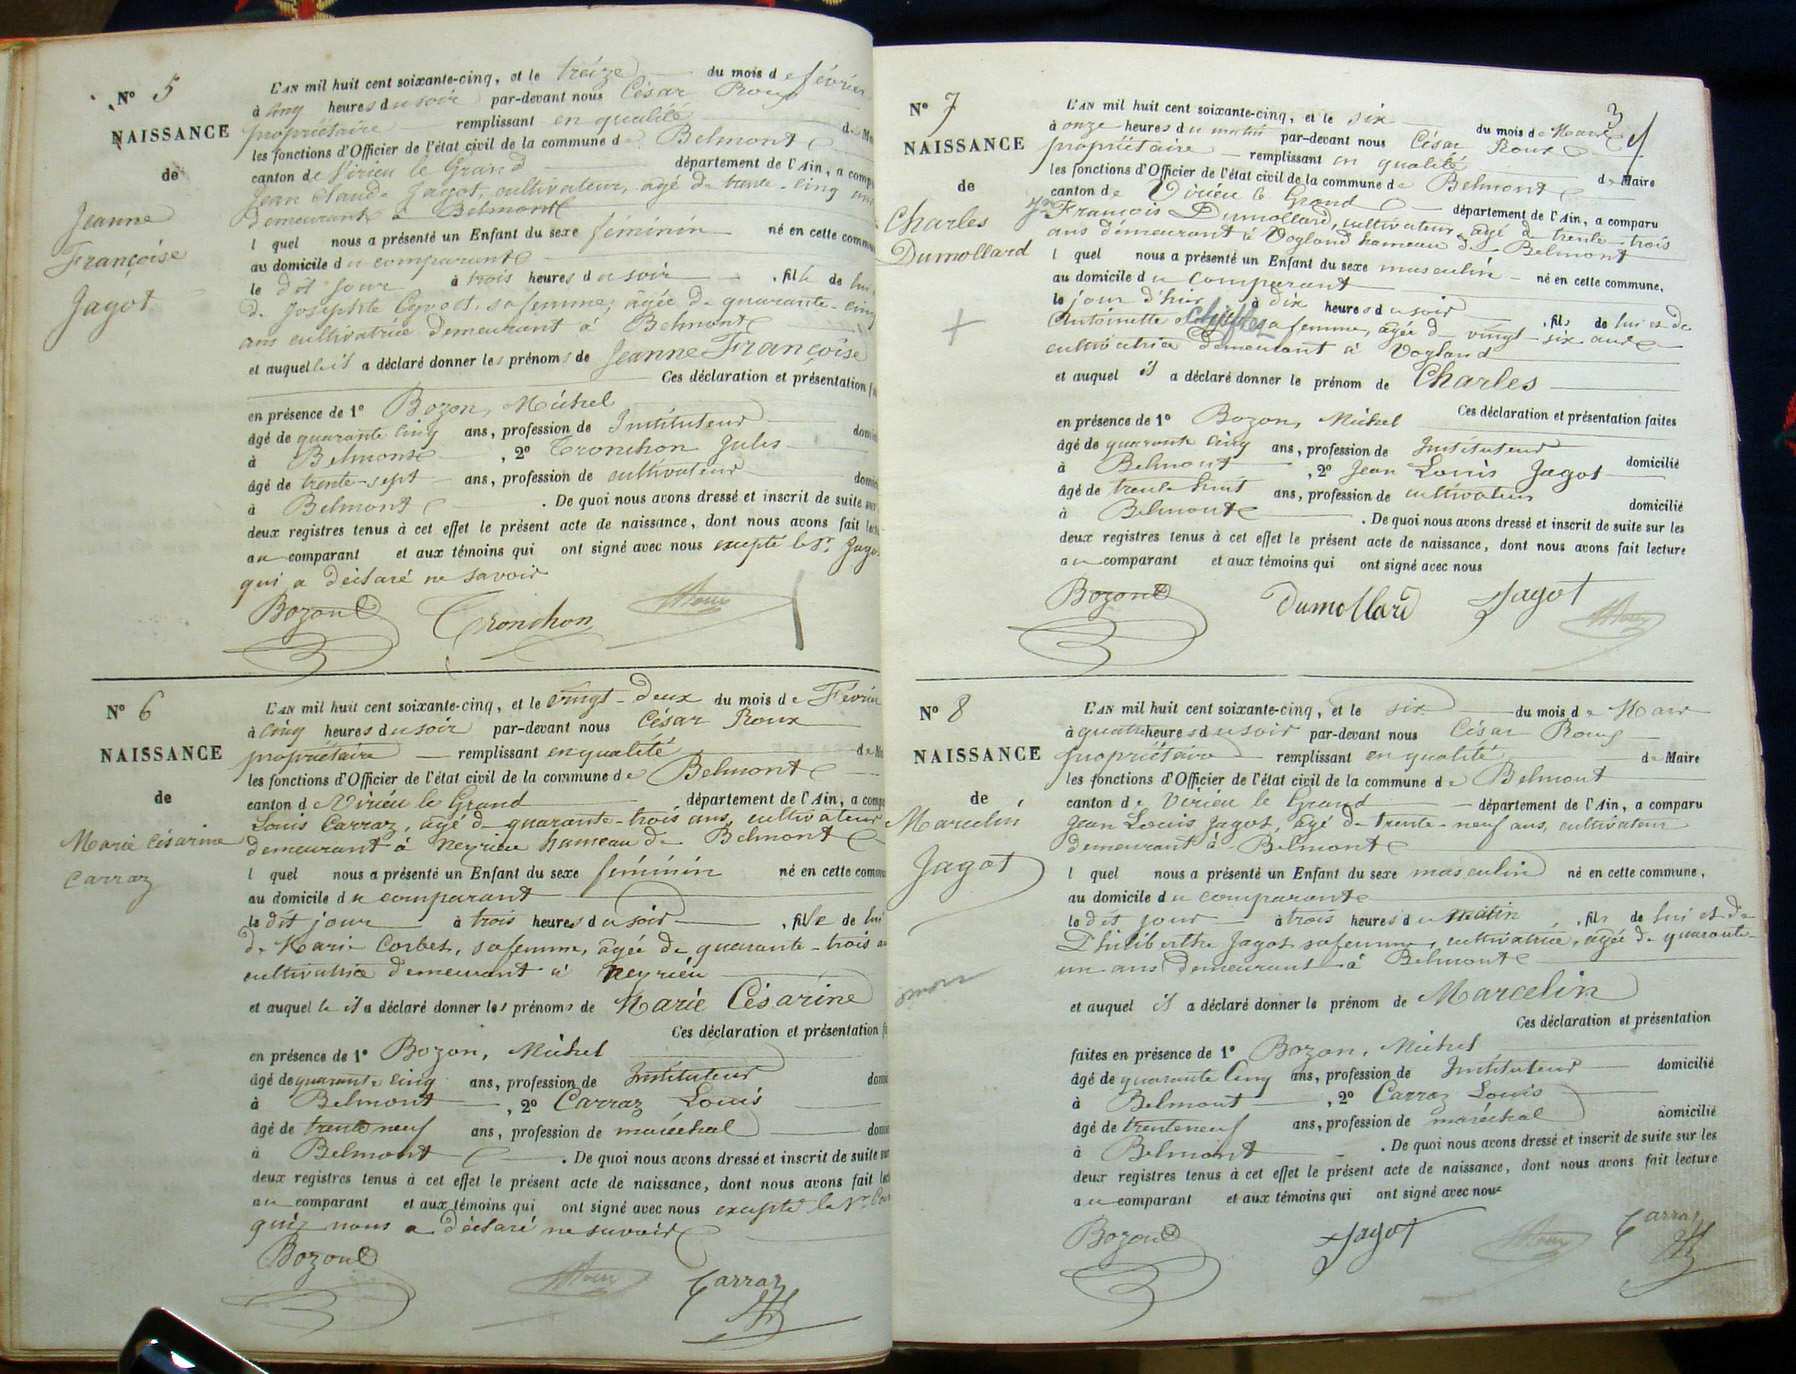 N° 5
NAISSANCE
de
Jeanne
Françoise
Jagot
L'AN mil huit cent soixante-cinq, et le treize du mois de février
à cinq heures du soir par-devant nous César Roux
propriétaire remplissant en qualité de Ma
les fonctions d'Officier de l'état civil de la commune de Belmont
canton de Virieu le Grand département de l'Ain, a comp
Jean Claude Jagot, cultivateur, agé de trente-cinq ans
demeurant à Belmont
lequel nous a présenté un Enfant du sexe féminin né en cette commu
au domicile du comparant
le dit jour à trois heures du soir, fille de lui
de Josephte Cyvoct, sa femme, agée de quarante-cinq
ans cultivatrice demeurant à Belmont
et auquel le il a déclaré donner les prénoms de Jeanne Françoise
Ces déclaration et présentation f
en présence de 1° Bozon, Michel
âgé de quarante cinq ans, profession de Instituteur domi
à Belmont, 2° Tronchon Jules
âgé de trente-sept ans, profession de cultivateur domi
à Belmont. De quoi nous avons dressé et inscrit de suite sur
deux registres tenus à cet effet le présent acte de naissance, dont nous avons fait lec
au comparant et aux témoins qui ont signé avec nous excepté le Sr. Jago
qui a déclaré ne savoir
Bozon Tronchon Roux
N° 6
NAISSANCE
de
Marie Césarine
Carraz
L'AN mil huit cent soixante-cinq, et le vingt-deux du mois de Févrie
à cinq heures du soir par-devant nous César Roux
propriétaire remplissant en qualité de Ma
les fonctions d'Officier de l'état civil de la commune de Belmont
canton de Virieu le Grand département de l'Ain, a comp
Louis Carraz, agé de quarante-trois ans, cultivateur
demeurant à Neyrieu hameau de Belmont
lequel nous a présenté un Enfant du sexe féminin né en cette commu
au domicile du comparant
le dit jour à trois heures du soir, fille de lui
de Marie Corbet, sa femme, agée de quarante-trois a
cultivatrice demeurant à Neyrieu
et auquel le il a déclaré donner les prénoms de Marie Césarine
Ces déclaration et présentation f
en présence de 1° Bozon, Michel
âgé de quarante cinq ans, profession de Instituteur domi
à Belmont, 2° Carraz Louis
âgé de trente neuf ans, profession de maréchal domi
à Belmont. De quoi nous avons dressé et inscrit de suite sur
deux registres tenus à cet effet le présent acte de naissance, dont nous avons fait lec
au comparant et aux témoins qui ont signé avec nous excepté le Sr Car
qui nous a déclaré ne savoir
Bozon Roux Carraz
3
N° 7
NAISSANCE
de
Charles
Dumollard
L'AN mil huit cent soixante-cinq, et le six du mois de Mars
à onze heures du matin par-devant nous César Roux
propriétaire remplissant en qualité de Maire
les fonctions d'Officier de l'état civil de la commune de Belmont
canton de Virieu le Grand département de l'Ain, a comparu
François Dumollard, cultivateur, agé de trente-trois
ans demeurant à Vogland hameau de Belmont
lequel nous a présenté un Enfant du sexe masculin né en cette commune,
au domicile du comparant
le jour d'hier à dix heures du soir, fils de lui et de
Antoinette sa femme, agée de vingt-six ans
cultivatrice demeurant à Vogland
et auquel il a déclaré donner le prénom de Charles
Ces déclaration et présentation faites
en présence de 1° Bozon, Michel
âgé de quarante cinq ans, profession de Instituteur domicilié
à Belmont, 2° Jean Louis Jagot
âgé de trente huit ans, profession de cultivateur domicilié
à Belmont. De quoi nous avons dressé et inscrit de suite sur les
deux registres tenus à cet effet le présent acte de naissance, dont nous avons fait lecture
au comparant et aux témoins qui ont signé avec nous
Bozon Dumollard Jagot Roux
N° 8
NAISSANCE
de
Marcelin
Jagot
L'AN mil huit cent soixante-cinq, et le six du mois de Mars
à quatre heures du soir par-devant nous César Roux
propriétaire remplissant en qualité de Maire
les fonctions d'Officier de l'état civil de la commune de Belmont
canton de Virieu le Grand département de l'Ain, a comparu
Jean Louis Jagot, agé de trente-neuf ans, cultivateur
demeurant à Belmont
lequel nous a présenté un Enfant du sexe masculin né en cette commune,
au domicile du comparant
le dit jour à trois heures du matin, fils de lui et de
Philiberthe Jagot sa femme, cultivatrice, agée de quarante-
un ans demeurant à Belmont
et auquel il a déclaré donner le prénom de Marcelin
Ces déclaration et présentation
faites en présence de 1° Bozon, Michel
âgé de quarante cinq ans, profession de Instituteur domicilié
à Belmont, 2° Carraz Louis
âgé de trente neuf ans, profession de maréchal domicilié
à Belmont. De quoi nous avons dressé et inscrit de suite sur les
deux registres tenus à cet effet le présent acte de naissance, dont nous avons fait lecture
au comparant et aux témoins qui ont signé avec nous
Bozon Jagot Roux Carraz